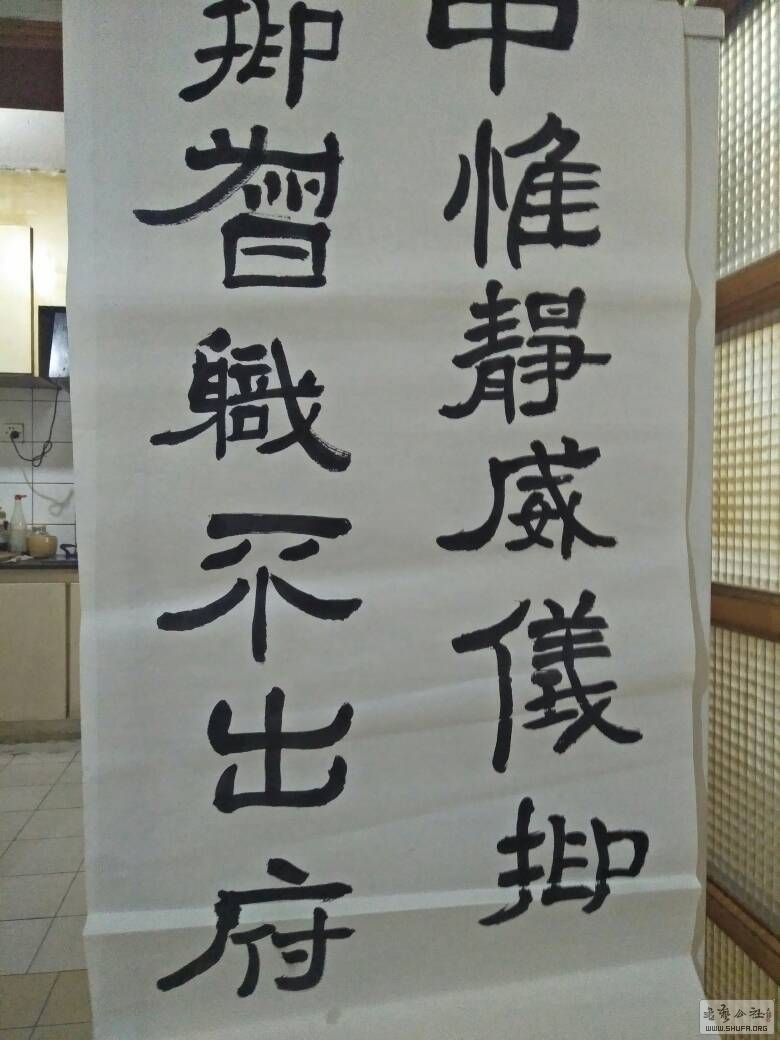 中惟靜威儀抑
抑督職不出府
书艺公社
WWW.SHUFA.ORG